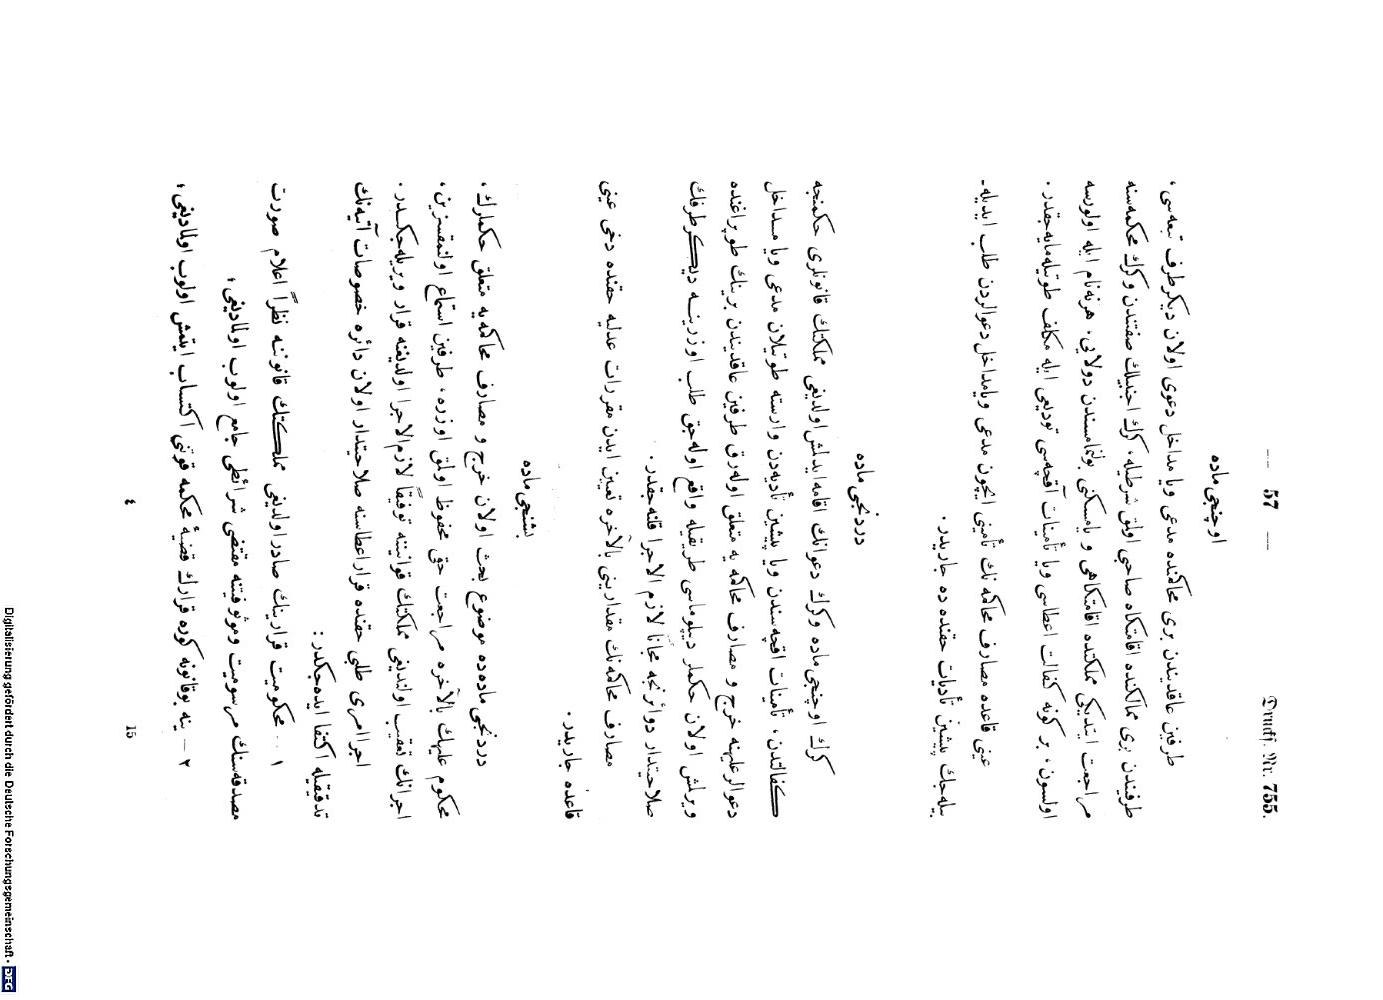 — 57 —
Drucks. Nr. 755.
اوچنجی ماده
طرفین عاقدیندن بری محاکمنده مدعی ویا مداخل دعوی اولان دیکر طرف تبعه‌سی،
طرفیندن بری ممالکنده اقامتکاه صاحبی اولمق شرطیله، کرك اجنبیلك صفتندن و کرك محکمه‌سنه
مراجعت ایتدیکی مملکتده اقامتکاهی و یامسکنی بولنمامسندن دولایی، هرنه‌نام ایله اولورسه
اولسون، بر کونه کفالت اعطاسی ویا تأمینات آقچه‌سی تودیعی ایله مکلف طوتیله‌مایه‌جقدر.
عینی قاعده مصارف محاکمه نك تأمینی ایچون مدعی ویامداخل دعوالردن طلب ایدیله‌-
بیله‌جك پیشین تأدیات حقنده ده جاریدر.
دردنجی ماده
کرك اوچنجی ماده وکرك دعوانك اقامه ایدلمش اولدیغی مملکتك قانونلری حکمنجه
کفالتدن، تأمینات اقچه‌سندن ویا پیشین تأدیه‌دن وارسته طوتیلان مدعی ویا مداخل
دعوالرعلیهنه خرج و مصارف محاکمه یه متعلق اوله‌رق طرفین عاقدیندن برینك طوپراغنده
ویرلمش اولان حکملر دیپلوماسی طریقیله واقع اوله‌جق طلب اوزرینه دیکرطرفك
صلاحیتدار دوائرنجه مجانا لازم الاجرا قلنه‌جقدر.
مصارف محاکمه‌نك مقدارینی بالآخره تعیین ایدن مقررات عدلیه حقنده دخی عینی
قاعده جاریدر.
بشنجی ماده
دردنجی ماده‌ده موضوع بحث اولان خرج و مصارف محاکمه‌یه متعلق حکملرك،
محکوم علیهك بالآخره مراجعت حقی محفوظ اولمق اوزره، طرفین استماع اولنمقسزین،
اجرانك تعقیب اولندیغی مملکتك قوانیننه توفیقاً لازم‌الاجرا اولدیغنه قرار ویریله‌جکدر.
اجرا امری طلبی حقنده قراراعطاسنه صلاحیتدار اولان دائره خصوصات آتیه‌نك
تدقیقیله اکتفا ایده‌جکدر:
١ — محکومیت قرارینك صادراولدیغی مملکتك قانوننه نظراً اعلام صورت
مصدقه‌سنك مرسومیت وموثوقیتنه مقتضی شرائطی جامع اولوب اولمادیغی،
٢ — ینه بوقانونه کوره قرارك قضیۀ محکمه قوتنی اکتساب ایتمش اولوب اولمادیغی،
٤
15
Digitalisierung gefördert durch die Deutsche Forschungsgemeinschaft - DFG